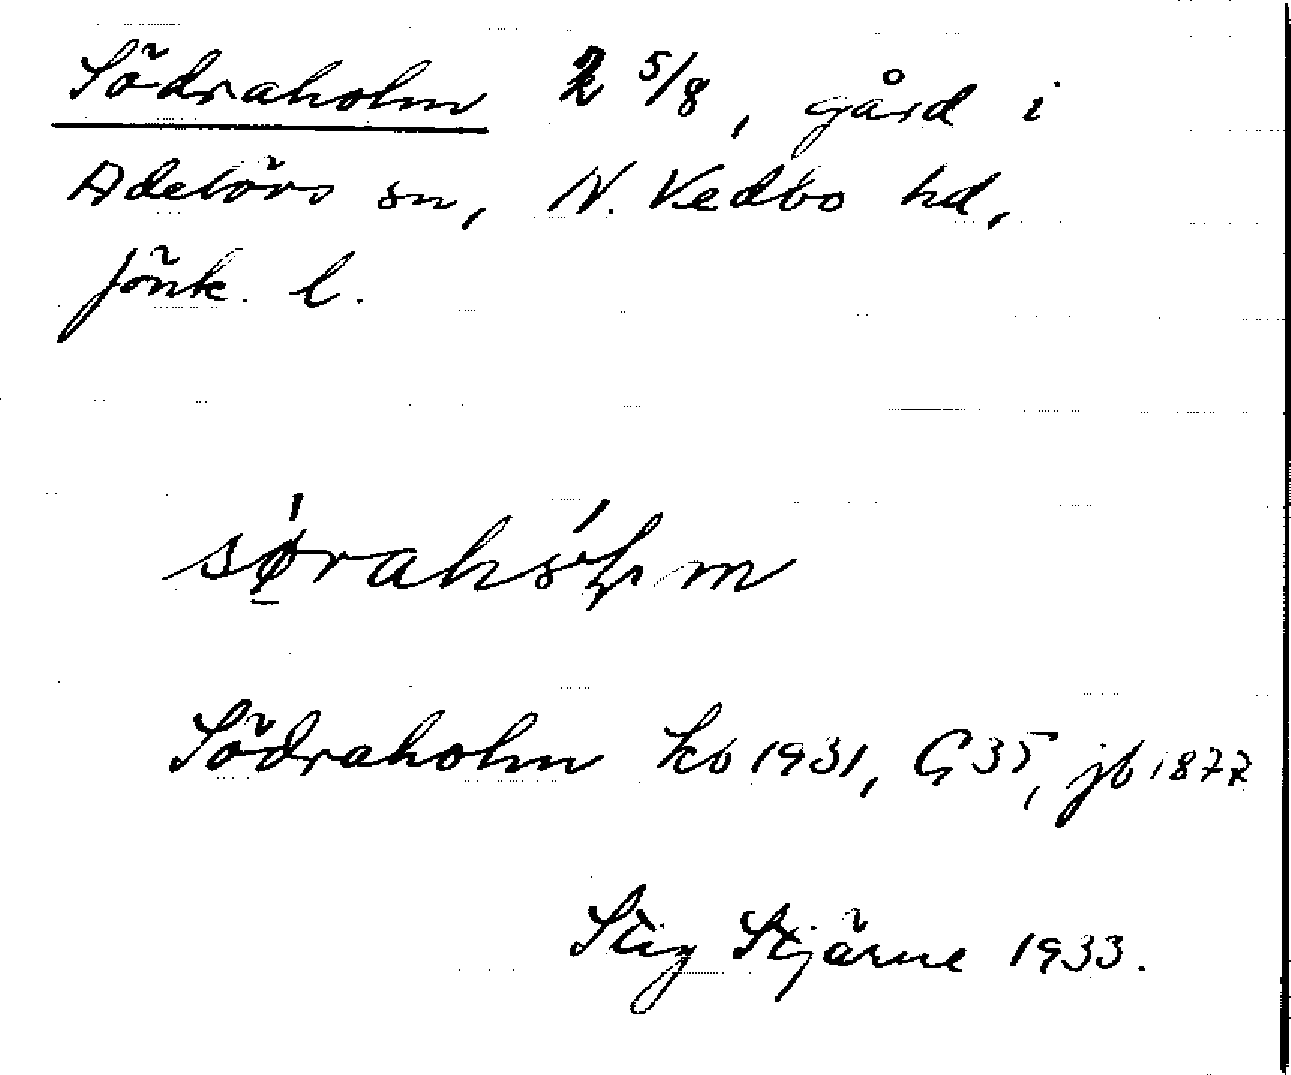 Södraholm 2 5/8, gård i
Adelövs sn, N. Vedbo hd,
Jönk. l.
Södraholm kb 1931, G 35, jb 1877
Stig Stjärne 1933.